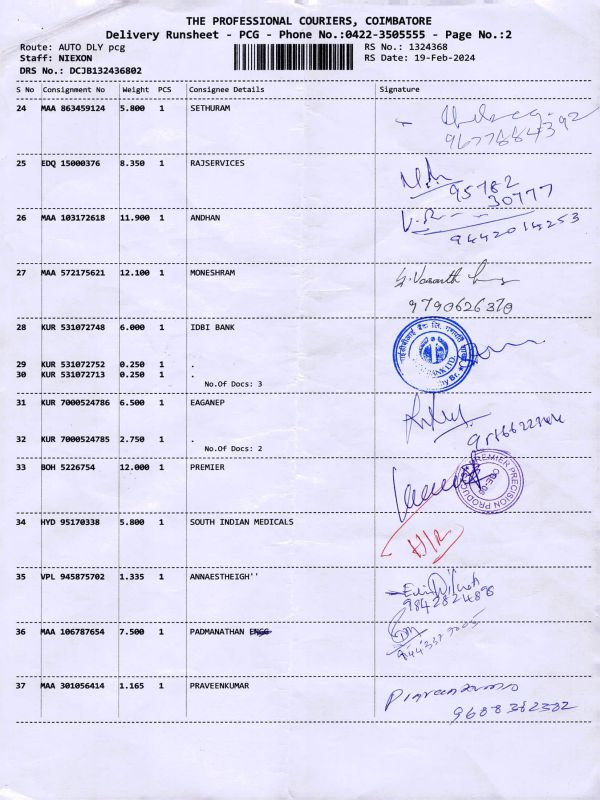 THE PROFESSIONAL COURIERS, COIMBATORE
Delivery Runsheet - PCG - Phone No.:0422-3505555 - Page No.:2
Route: AUTO DLY pcg RS No.: 1324368
Staff: NIEXON RS Date: 19-Feb-2024
DRS No.: DCJB132436802
S No Consignment No Weight PCS Consignee Details Signature
24 MAA 863459124 5.800 1 SETHURAM
25 EDQ 15000376 8.350 1 RAJSERVICES
95782
30777
26 MAA 103172618 11.900 1 ANDHAN
9442014253
27 MAA 572175621 12.100 1 MONESHRAM
9790626370
28 KUR 531072748 6.000 1 IDBI BANK
29 KUR 531072752 0.250 1 .
30 KUR 531072713 0.250 1 .
No.Of Docs: 3
31 KUR 7000524786 6.500 1 EAGANEP
32 KUR 7000524785 2.750 1 .
No.Of Docs: 2
33 BOH 5226754 12.000 1 PREMIER
PREMIER PRECISION PRODUC
34 HYD 95170338 5.800 1 SOUTH INDIAN MEDICALS
35 VPL 945875702 1.335 1 ANNAESTHEIGH''
9842824898
36 MAA 106787654 7.500 1 PADMANATHAN ENGG
37 MAA 301056414 1.165 1 PRAVEENKUMAR
9688382382